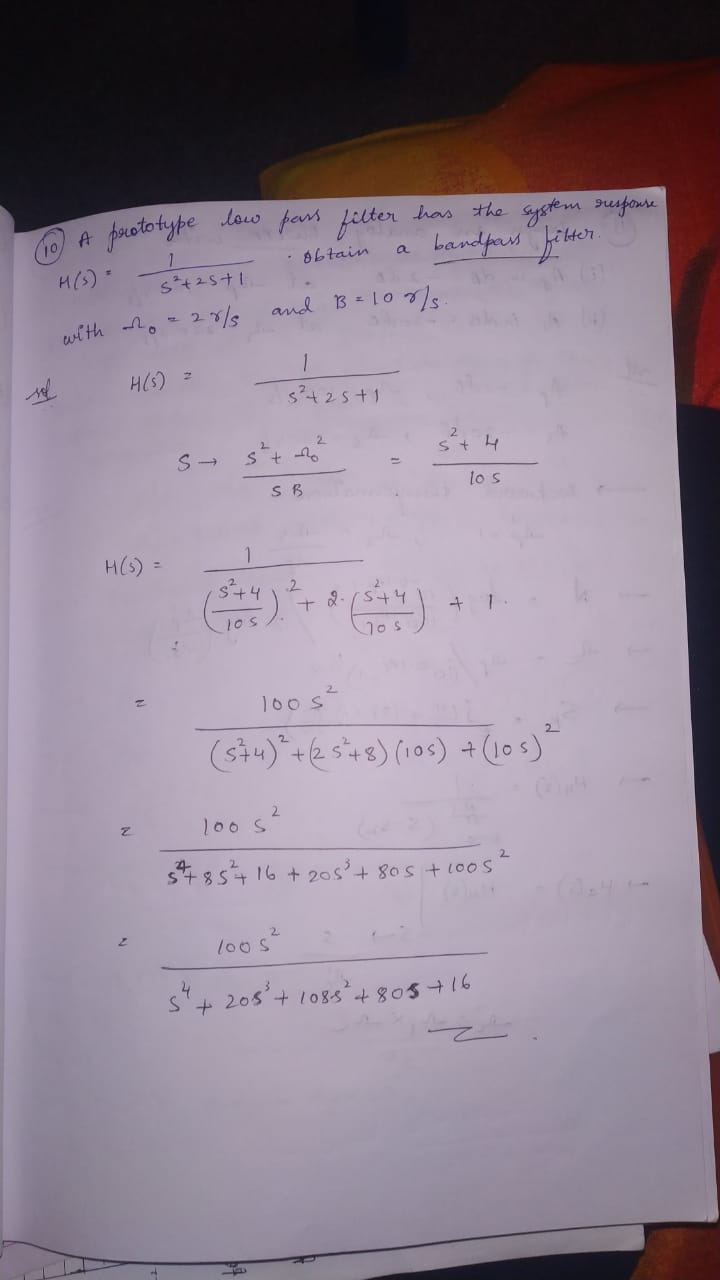 (10) A prototype low pass filter has the system response
H(s) = 1 / (s²+2s+1) . Obtain a bandpass filter.
with Ω₀ = 2 r/s and B = 10 r/s.
sol H(s) = 1 / (s²+2s+1)
s → (s² + Ω₀²) / (s B) = (s² + 4) / (10 s)
H(s) = 1 / (((s²+4)/(10s))² + 2·((s²+4)/(10s)) + 1)
= 100 s² / ((s²+4)² + (2s²+8)(10s) + (10s)²)
= 100 s² / (s⁴+8s²+16 + 20s³ + 80s + 100s²)
= 100 s² / (s⁴ + 20s³ + 108s² + 80s + 16)